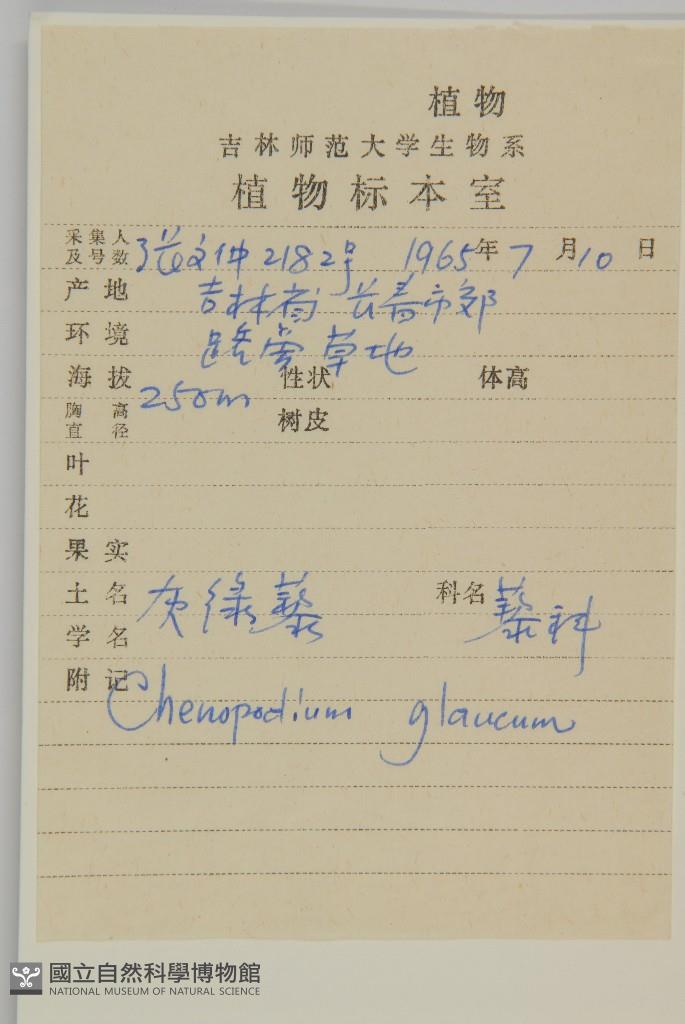 植物
吉林师范大学生物系
植物标本室
采集人及号数 张文仲 2182号 1965年7月10日
产地 吉林省 长春市郊
环境 路旁草地
海拔 250m 性状 体高
胸高直径 树皮
叶
花
果实
土名 灰绿藜 科名 藜科
学名
附记 Chenopodium glaucum
國立自然科學博物館
NATIONAL MUSEUM OF NATURAL SCIENCE